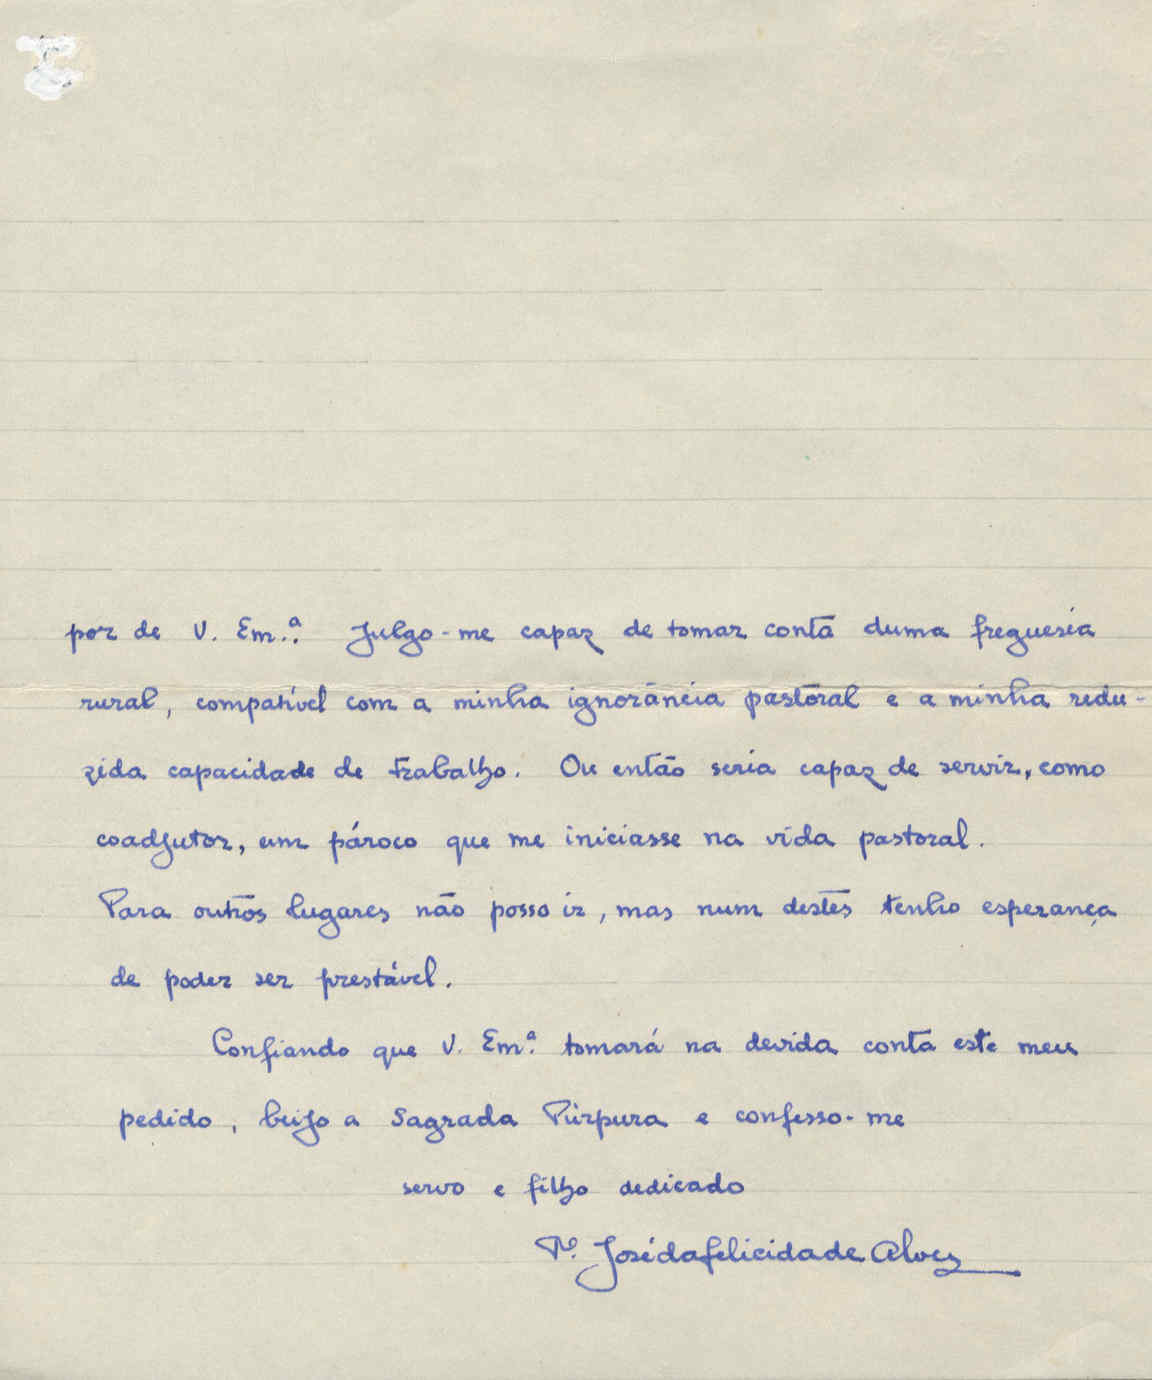 por de V. Em.ª. Julgo-me capaz de tomar conta duma freguesia
rural, compatível com a minha ignorância pastoral e a minha redu-
zida capacidade de trabalho. Ou então seria capaz de servir, como
coadjutor, um pároco que me iniciasse na vida pastoral.
Para outros lugares não posso ir, mas num destes tenho esperança
de poder ser prestável.
Confiando que V. Em.ª tomará na devida conta este meu
pedido, beijo a Sagrada Púrpura e confesso-me
servo e filho dedicado
Pº. José da Felicidade Alves